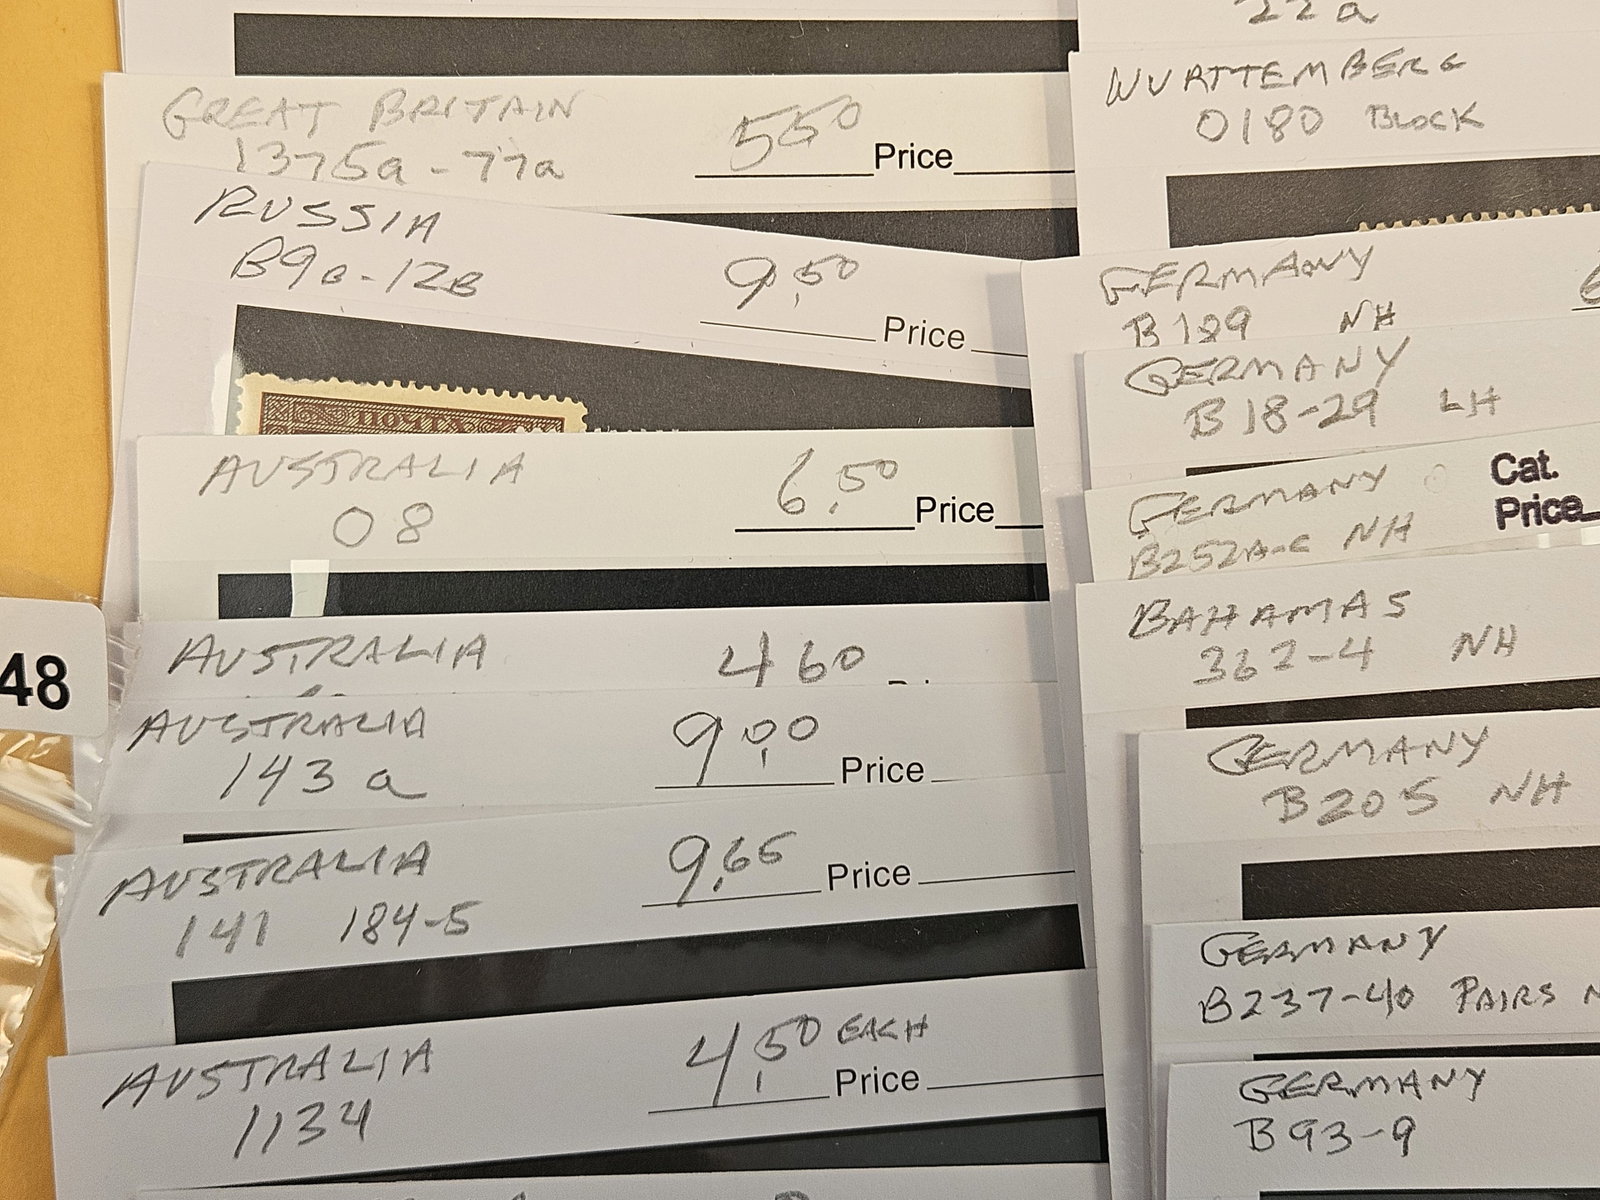 GREAT BRITAIN
1375a - 77a
5 50 Price
RUSSIA
B9B-12B
9.50 Price
AUSTRALIA
O8
6.50 Price
AUSTRALIA
4 60
AUSTRALIA
143a
9.00 Price
AUSTRALIA
141 184-5
9.65 Price
AUSTRALIA
1134
4.50 EACH
Price
48
22a
WURTTEMBERG
O180 BLOCK
GERMANY
B189 NH
GERMANY
B18-29 LH
GERMANY
B252A-C NH
Cat.
Price
BAHAMAS
362-4 NH
GERMANY
B205 NH
GERMANY
B237-40 PAIRS
GERMANY
B93-9